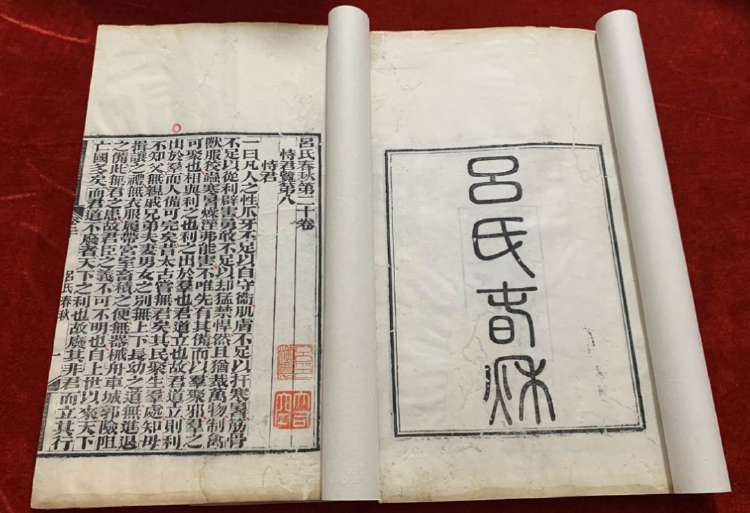 呂氏春秋
呂氏春秋第二十卷
恃君覽第八
恃君
一曰凡人之性爪牙不足以自守衛肌膚不足以扞寒暑筋骨
不足以從利辟害勇敢不足以却猛禁悍然且猶裁萬物制禽
獸服狡蟲寒暑燥溼弗能害不唯先有其備而以羣聚邪羣之
可聚也相與利之也利之出於羣也君道立也故君道立則利
出於羣而人備可完矣昔太古嘗無君矣其民聚生羣處知母
不知父無親戚兄弟夫妻男女之別無上下長幼之道無進退
揖讓之禮無衣服履帶宮室畜積之便無器械舟車城郭險阻
之備此無君之患故君臣之義不可不明也自上世以來天下
亡國多矣而君道不廢者天下之利也故廢其非君而立其行
呂氏春秋
一